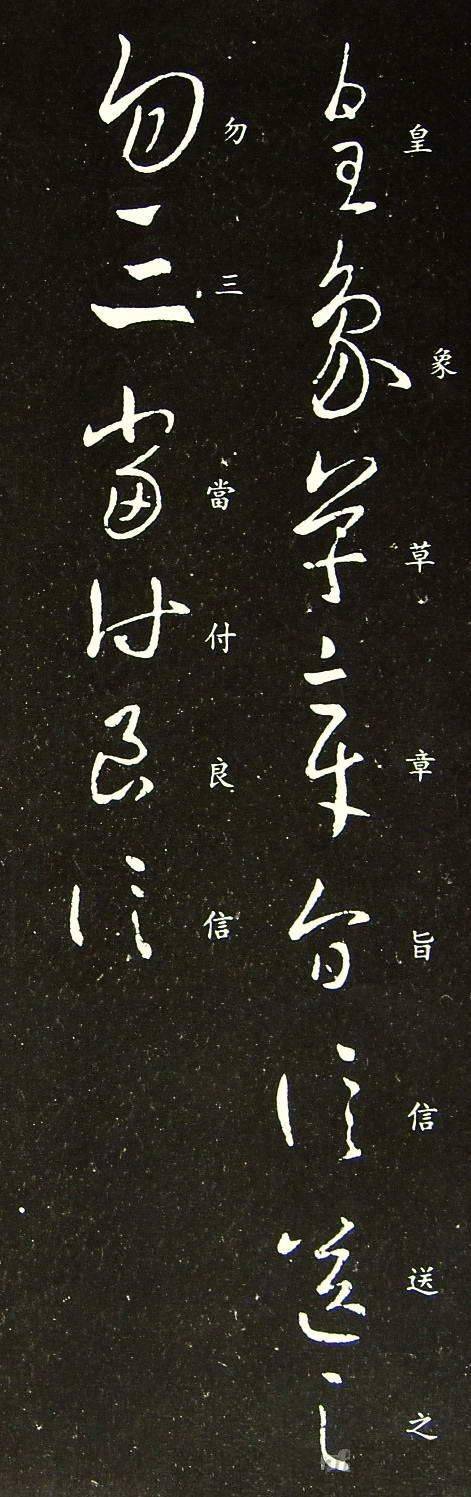 皇象草章旨信送之
勿三當付良信